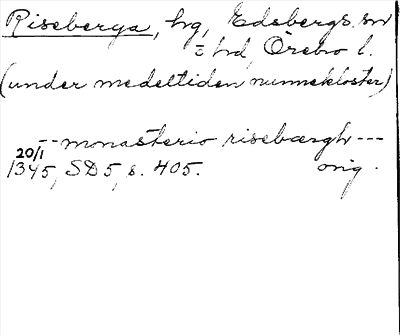 Riseberga, hg, Edsbergs sn
= hd, Örebro l.
(under medeltiden nunnekloster)
-- monasterio risebærgh ---
20/1 1345, SD 5, s. 405. orig.